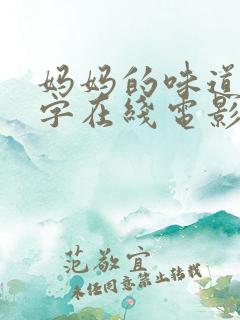 妈妈的味道
字在线电影
范敬宜
未经同意禁止转载